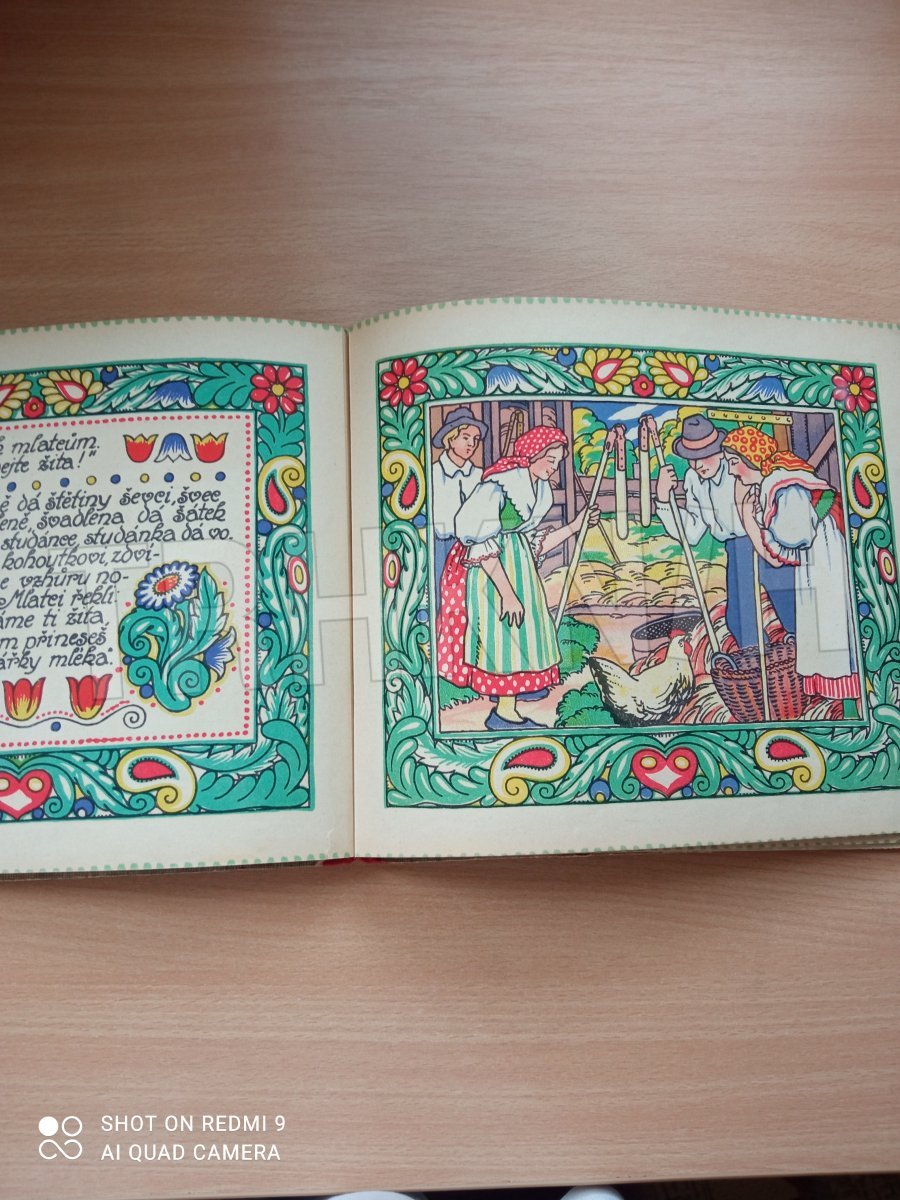 mlatcům.
žita!"
dá štětiny ševci, švec
švadlena dá šátek
studánce, studánka dá vo-
kohoutkovi, zdvi-
vzhůru no-
Mlatci řekli:
ti žita,
přineseš
mléka.
SHOT ON REDMI 9
AI QUAD CAMERA